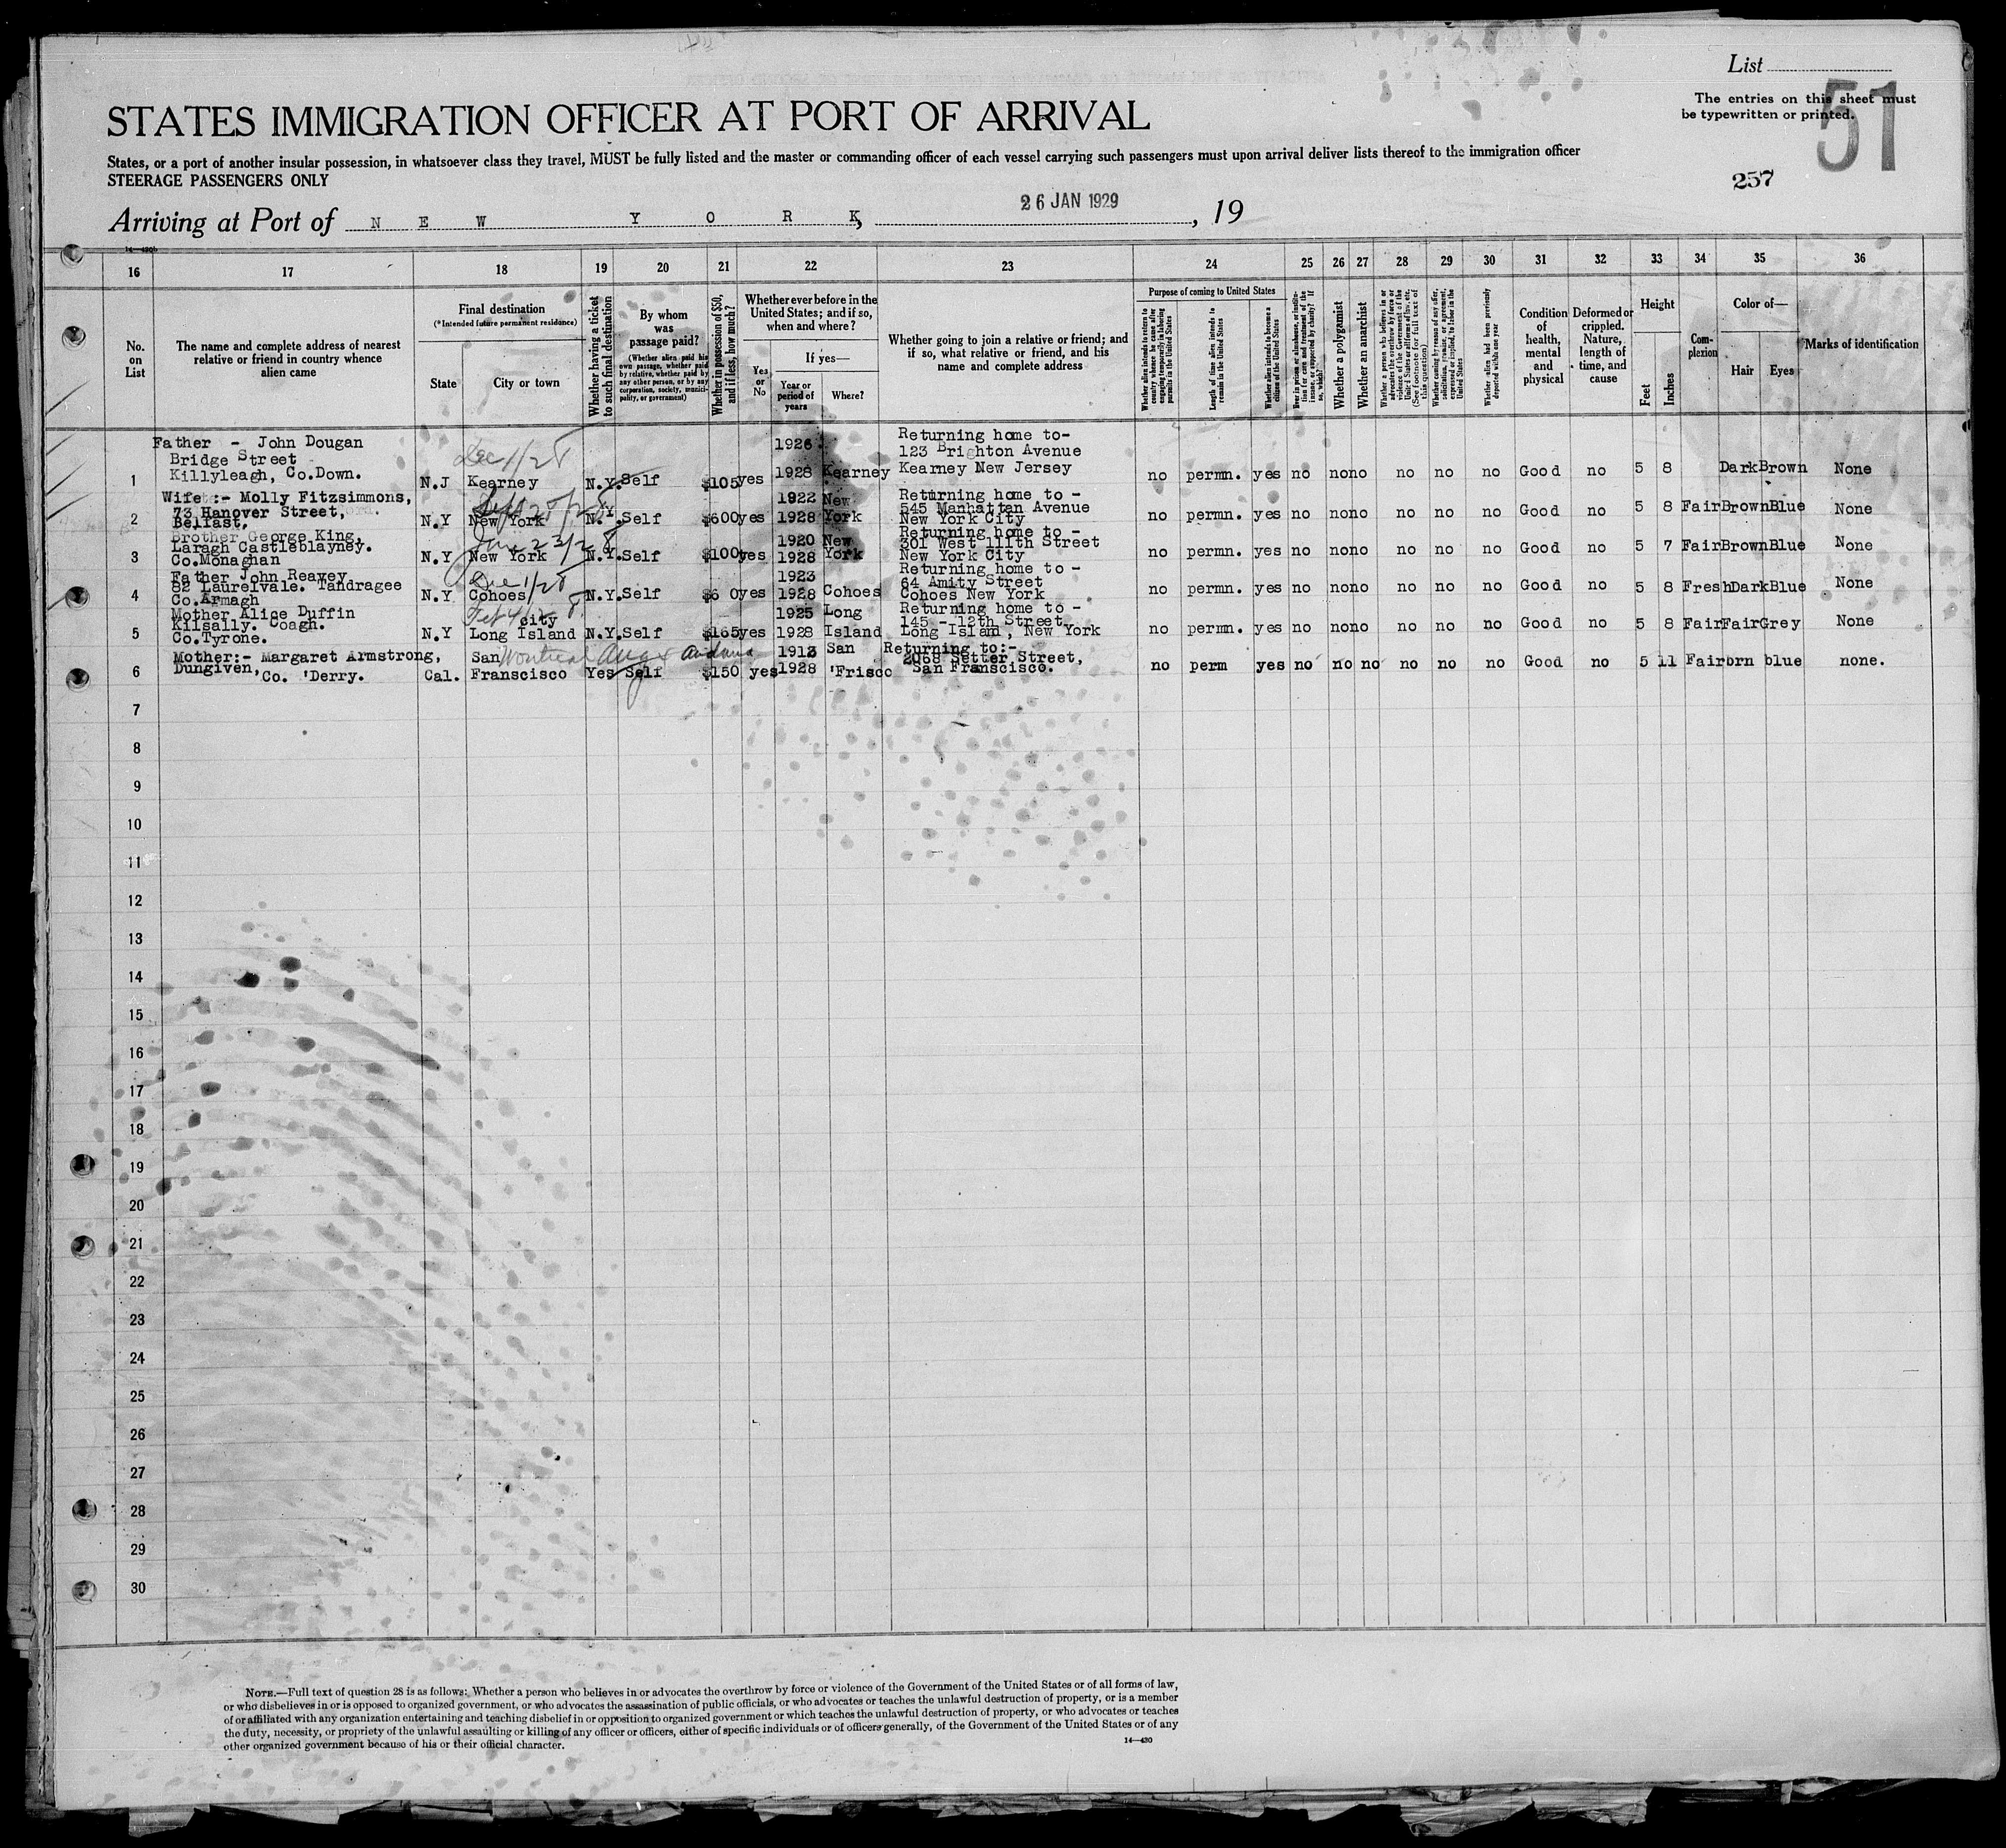 List
51
The entries on this sheet must
be typewritten or printed.
STATES IMMIGRATION OFFICER AT PORT OF ARRIVAL
States, or a port of another insular possession, in whatsoever class they travel, MUST be fully listed and the master or commanding officer of each vessel carrying such passengers must upon arrival deliver lists thereof to the immigration officer
STEERAGE PASSENGERS ONLY
257
Arriving at Port of N E W Y O R K, 26 JAN 1929, 19
16 17 18 19 20 21 22 23 24 25 26 27 28 29 30 31 32 33 34 35 36
No. on List
The name and complete address of nearest relative or friend in country whence alien came
Final destination
(*Intended future permanent residence)
State
City or town
Whether having a ticket to such final destination
By whom was passage paid?
(Whether alien paid his own passage, whether paid by relative, whether paid by any other person, or by any corporation, society, municipality, or government)
Whether in possession of $50, and if less, how much?
Whether ever before in the United States; and if so, when and where?
Yes or No
If yes—
Year or period of years
Where?
Whether going to join a relative or friend; and if so, what relative or friend, and his name and complete address
Purpose of coming to United States
Whether alien intends to return to country whence he came after engaging temporarily in laboring pursuits in the United States
Length of time alien intends to remain in the United States
Whether alien intends to become a citizen of the United States
Ever in prison or almshouse, or institution for care and treatment of the insane, or supported by charity? If so, which?
Whether a polygamist
Whether an anarchist
Whether a person who believes in or advocates the overthrow by force or violence of the Government of the United States or all forms of law, etc. (See footnote for full text of this question)
Whether coming by reason of any offer, solicitation, promise, or agreement, expressed or implied, to labor in the United States
Whether alien had been previously deported within one year
Condition of health, mental and physical
Deformed or crippled. Nature, length of time, and cause
Height
Feet
Inches
Complexion
Color of—
Hair
Eyes
Marks of identification
Father - John Dougan
Bridge Street
Killyleagh, Co.Down.
1 N.J Kearney Dec 1/28 N.Y. Self $105 yes 1926 1928 Kearney
Returning home to-
123 Brighton Avenue
Kearney New Jersey
no permn. yes no no no no no no Good no 5 8 Dark Brown None
Wife :- Molly Fitzsimmons,
73 Hanover Street,
Belfast.
2 N.Y New York N.Y. Self $600 yes 1922 1928 New York
Returning home to -
545 Manhattan Avenue
New York City
no permn. yes no no no no no no Good no 5 8 Fair Brown Blue None
Brother George King,
Laragh Castleblayney.
Co.Monaghan
3 N.Y New York N.Y. Self $100 yes 1920 1928 New York
Returning home to -
301 West 111th Street
New York City
no permn. yes no no no no no no Good no 5 7 Fair Brown Blue None
Father John Reavey
82 Laurelvale. Tandragee
Co.Armagh
4 N.Y Cohoes Dec 1/28 N.Y. Self $6 0 yes 1923 1928 Cohoes
Returning home to -
64 Amity Street
Cohoes New York
no permn. yes no no no no no no Good no 5 8 Fresh Dark Blue None
Mother Alice Duffin
Kilsally. Coagh.
Co.Tyrone.
5 N.Y Long Island city N.Y. Self $165 yes 1925 1928 Long Island
Returning home to -
145 - 12th Street
Long Island, New York
no permn. yes no no no no no no Good no 5 8 Fair Fair Grey None
Mother:- Margaret Armstrong,
Dungiven, Co. 'Derry.
6 Cal. San Franscisco Yes Self $150 yes 1913 1928 San 'Frisco
Returning to:-
2068 Setter Street,
San Franscisco.
no perm yes no no no no no no Good no 5 11 Fair brn blue none.
7
8
9
10
11
12
13
14
15
16
17
18
19
20
21
22
23
24
25
26
27
28
29
30
NOTE.—Full text of question 28 is as follows: Whether a person who believes in or advocates the overthrow by force or violence of the Government of the United States or of all forms of law,
or who disbelieves in or is opposed to organized government, or who advocates the assassination of public officials, or who advocates or teaches the unlawful destruction of property, or is a member
of or affiliated with any organization entertaining and teaching disbelief in or opposition to organized government or which teaches the unlawful destruction of property, or who advocates or teaches
the duty, necessity, or propriety of the unlawful assaulting or killing of any officer or officers, either of specific individuals or of officers generally, of the Government of the United States or of any
other organized government because of his or their official character.
14—430